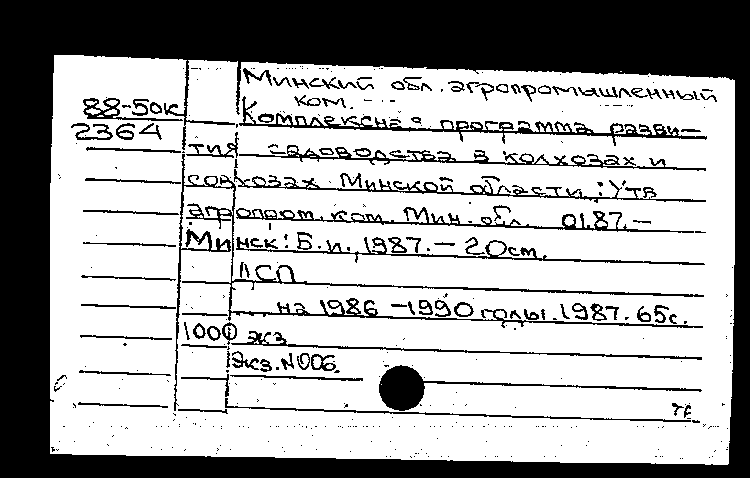 Минский обл. агропромышленный
ком.
88-50к
Комплексная программа разви-
2364
тия садоводства в колхозах и
совхозах Минской области: Утв
агропром. ком. Мин. обл. 01.87.—
Минск: Б.и., 1987.— 20см.
ДСП
... на 1986 -1990 годы. 1987. 65с.
1000 экз
Экз. N006.